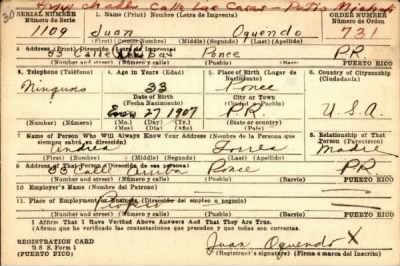 Calle Las Casas - Patio Michel
SERIAL NUMBER 1. Name (Print) (Nombre de Letra de Imprenta) ORDER NUMBER
Número de Serie Número de Orden
1109 Juan Oquendo 731
(First) (Primer Nombre) (Middle) (Segundo) (Last) (Apellido)
2. Address (Print) (Dirección Letra de Imprenta)
33 Calle Ponce P.R.
(Number and street) (Número y calle) (Town) (Pueblo) PUERTO RICO
3. Telephone (Teléfono) 4. Age in Years (Edad) 5. Place of Birth (Lugar de Nacimiento) 6. Country of Citizenship (Ciudadanía)
Ninguno 33 Ponce
Date of Birth City or Town
(Fecha Nacimiento) (Ciudad o Pueblo)
Enero 27 1907 P.R. U.S.A.
(Mo.) (Day) (Yr.) State or Country
(Mes) (Día) (Año) (Estado o País)
7. Name of Person Who Will Always Know Your Address (Nombre de la Persona que siempre sabrá su dirección) 8. Relationship of That Person (Parentesco)
Torres Madre
(First) (Primer Nombre) (Middle) (Segundo) (Last) (Apellido)
9. Address of That Person (Dirección de esa persona)
33 Calle Arriba Ponce P.R.
(Number and street) (Número y calle) (Town) (Pueblo) PUERTO RICO
10. Employer's Name (Nombre del Patrono)
11. Place of Employment or Business (Dirección del empleo o negocio)
Propio
(Number and street) (Número y calle) (Town) (Pueblo) PUERTO RICO
I Affirm That I Have Verified Above Answers And That They are True.
(Afirmo que he verificado las contestaciones que preceden y que todas son correctas)
REGISTRATION CARD Juan Oquendo X
D S S. Form 1 (Registrant's signature) (Firma o marca del Inscrito)
(PUERTO RICO)